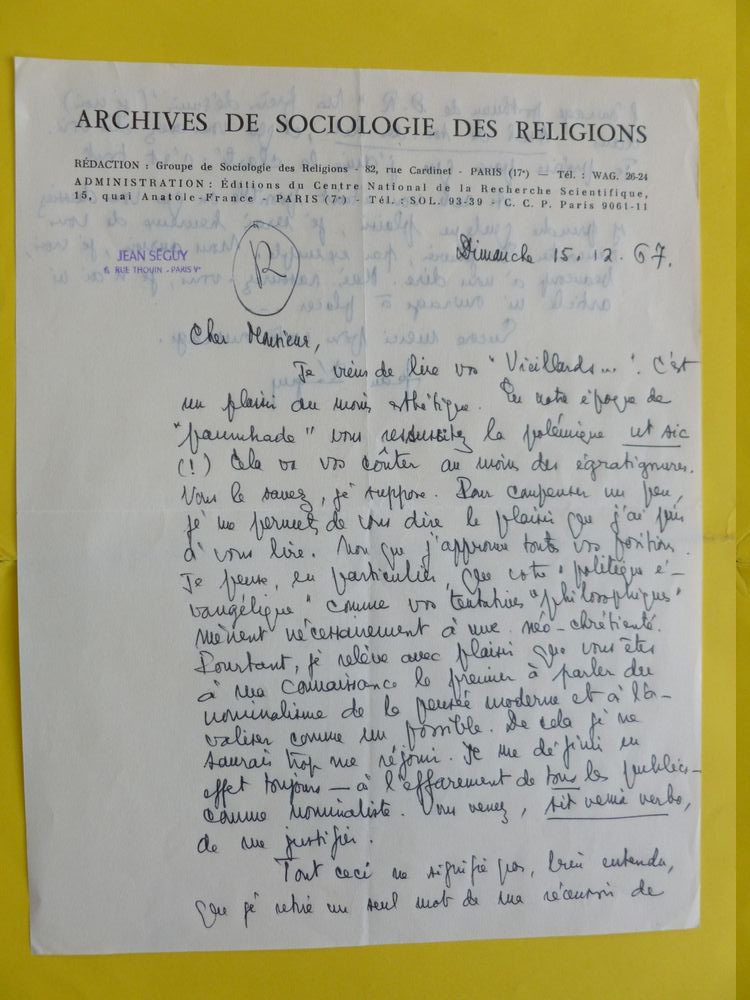 ARCHIVES DE SOCIOLOGIE DES RELIGIONS
RÉDACTION : Groupe de Sociologie des Religions - 82, rue Cardinet - PARIS (17e) — Tél. : WAG. 26-24
ADMINISTRATION : Éditions du Centre National de la Recherche Scientifique,
15, quai Anatole-France - PARIS (7e) - Tél. : SOL. 93-39 - C. C. P. Paris 9061-11
JEAN SEGUY
6, RUE THOUIN - PARIS Ve
R
Dimanche 15.12.67.
Cher Monsieur,
Je viens de lire vos "Vieillards...". C'est
un plaisir au moins esthétique. En notre époque de
"paumhade" vous ressuscitez la polémique ut sic
(!) Cela va vos coûter au moins des égratignures.
Vous le savez, je suppose. Pour compenser un peu,
je me permets de vous dire le plaisir que j'ai pris
à vous lire. Non que j'approuve toutes vos positions.
Je pense, en particulier, que votre "politique é-
vangélique" comme vos tentatives "philosophiques"
mènent nécessairement à une néo-chrétienté.
Pourtant, je relève avec plaisir que vous êtes
à ma connaissance le premier à parler du
nominalisme de la pensée moderne et à l'a-
valiser comme un possible. De cela je ne
saurais trop me réjouir. Je me définis en
effet toujours — à l'effarement de tous les publics —
comme nominaliste. Vous venez, sit venia verbo,
de me justifier.
Tout ceci ne signifie pas, bien entendu,
que je retire un seul mot de ma recension de